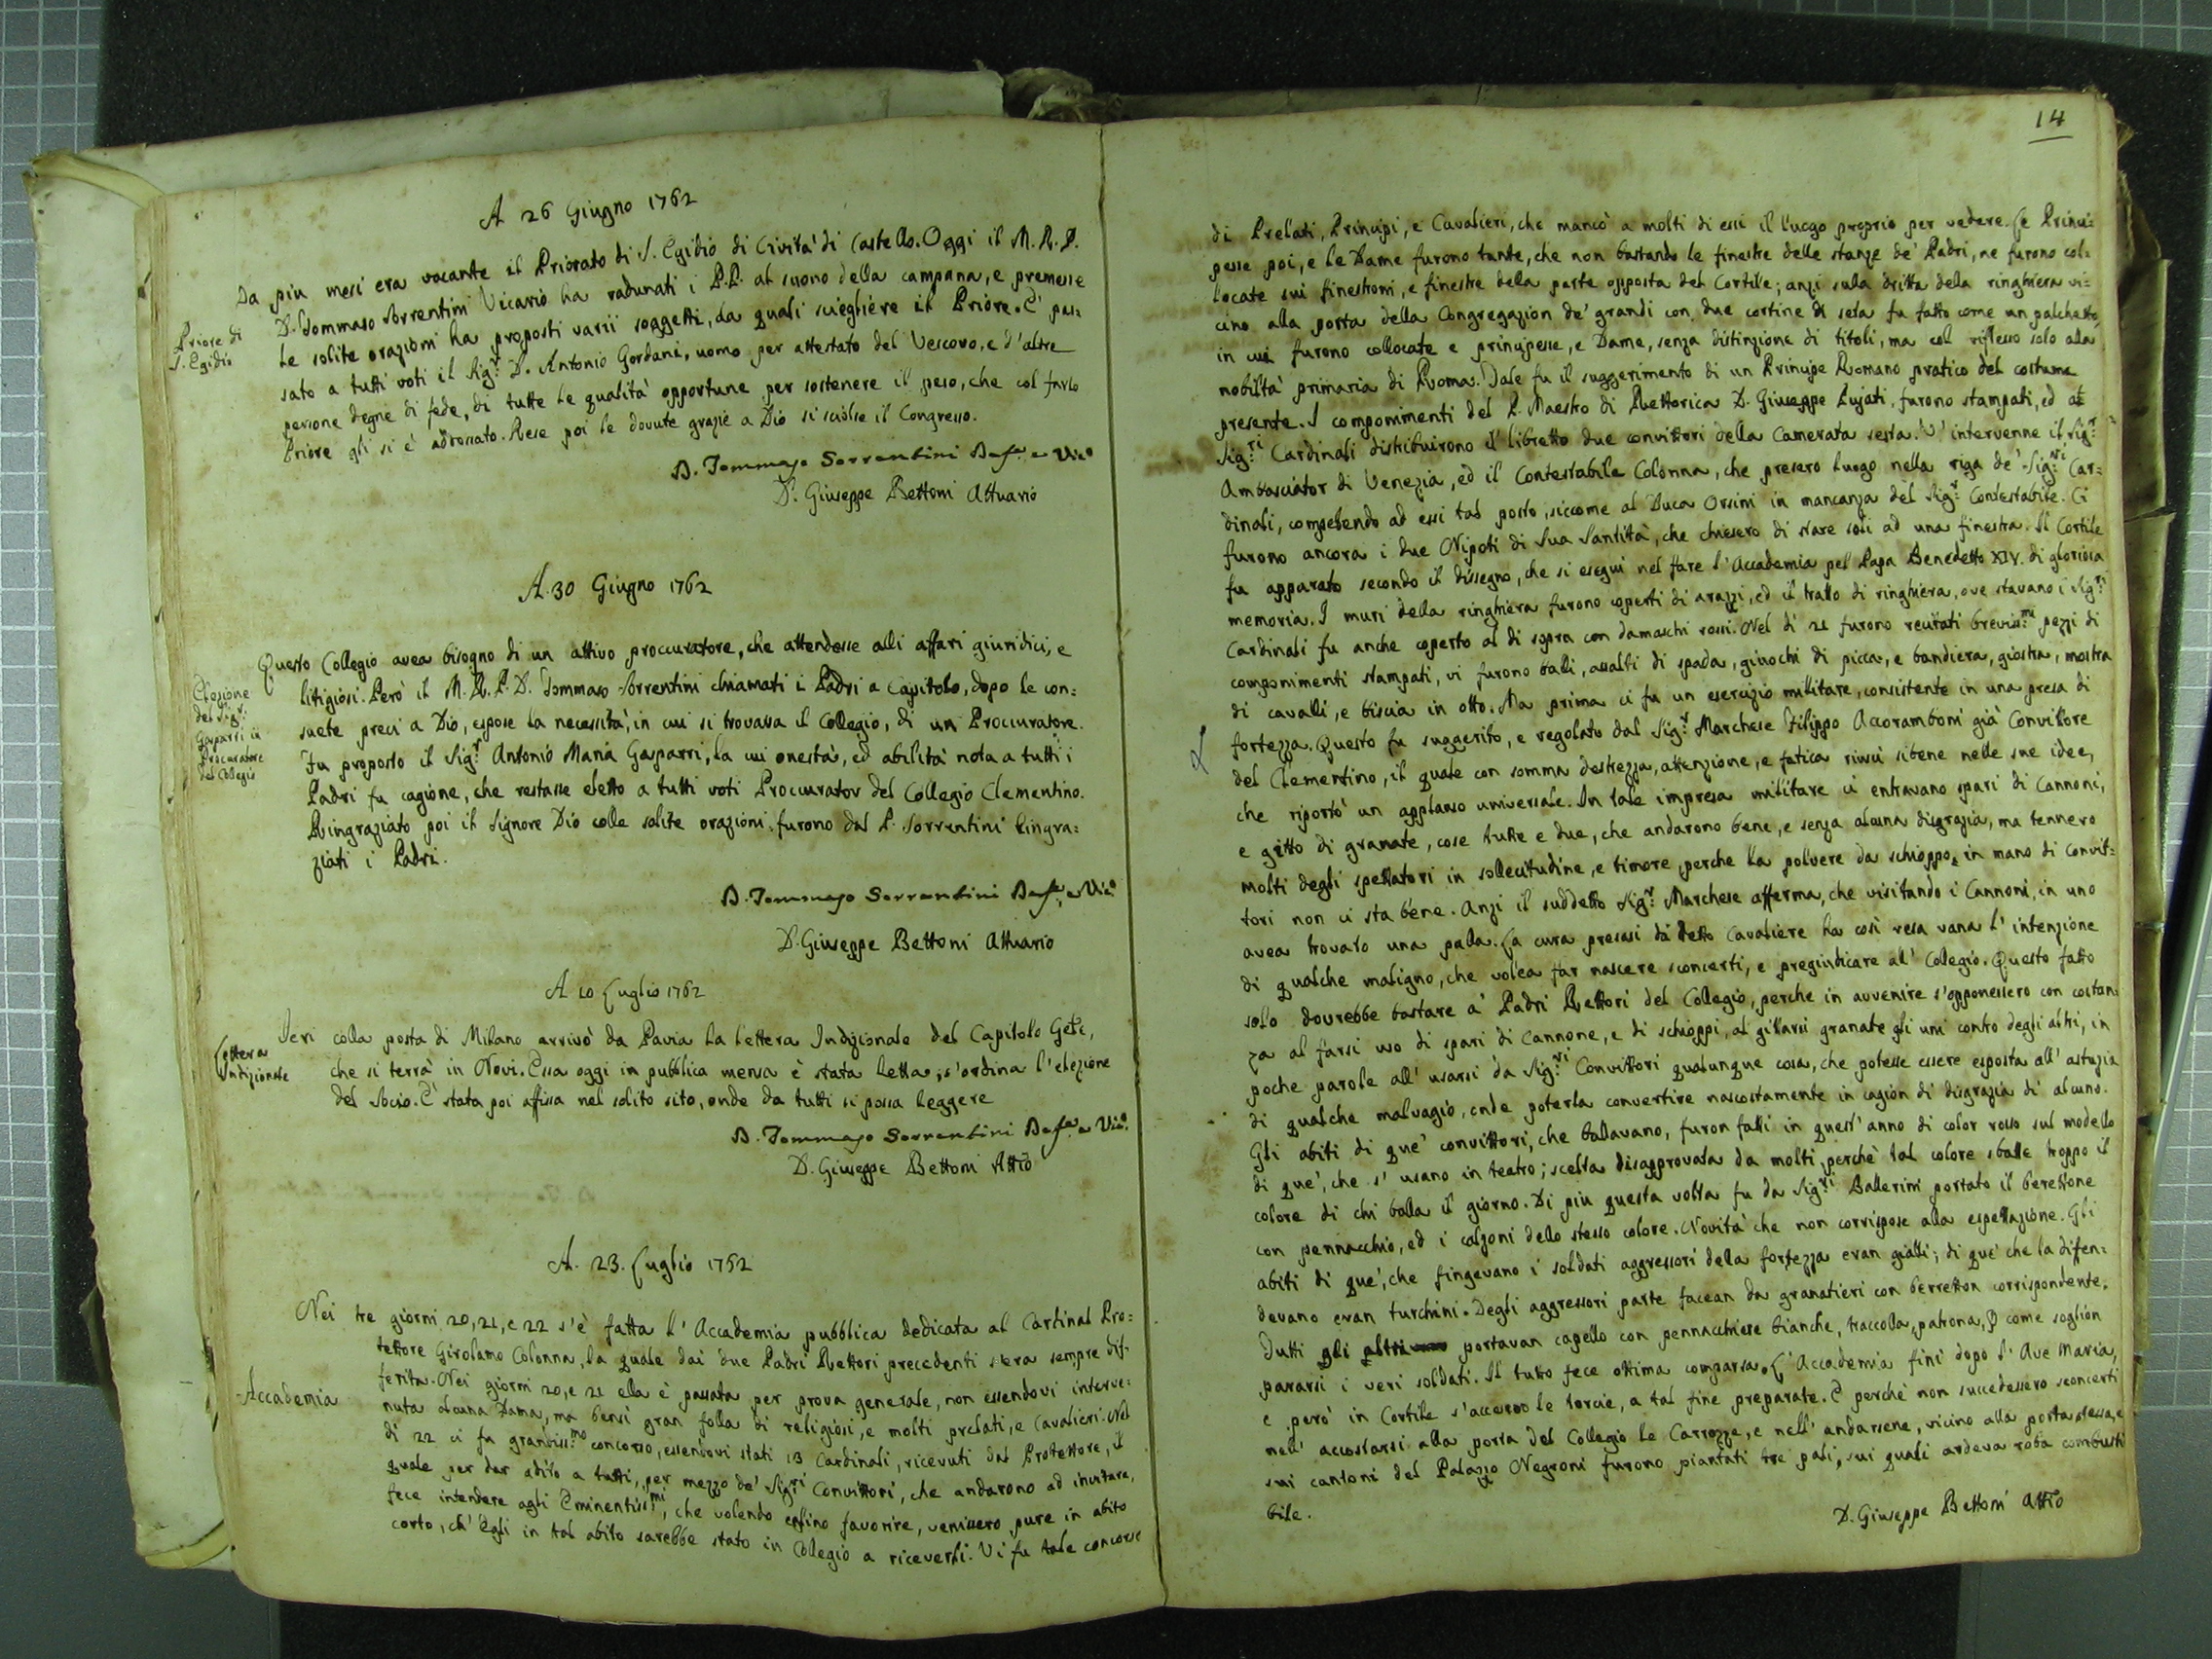 A 26 Giugno 1762
Da piu mesi era vacante il Priorato di S. Egidio di Civita' di Castello. Oggi il M. R. P.
D. Tommaso Sorrentini Vicario ha radunati i P.P. al suono della campana, e premesse
Priore di
S. Egidio
le solite orazioni ha proposti varii soggetti, da quali sciegliere il Priore. E' pas:
sato a tutti voti il Sigr. D. Antonio Gordani, uomo per attestato del Vescovo, e d'altre
persone degne di fede, di tutte le qualità opportune per sostenere il peso, che col farlo
Priore gli si è addossato. Rese poi le dovute grazie a Dio si sciolse il Congresso.
D. Tommaso Sorrentini
D. Giuseppe Bettoni Attuario
A 30 Giugno 1762
Questo Collegio avea bisogno di un attivo proccuratore, che attendesse alli affari giuridici, e
litigiosi. Però il M. R. P. D. Tommaso Sorrentini chiamati i Padri a Capitolo, dopo le con:
Elezione
del Sigr.
Gasparri in
Procuratore
del Collegio
suete preci a Dio, espose la necessità, in cui si trovassa il Collegio, di un Proccuratore.
Fu proposto il Sigr. Antonio Maria Gasparri, la cui onestà, ed abilità nota a tutti i
Padri fu cagione, che restasse eletto a tutti voti Proccurator del Collegio Clementino.
Ringraziato poi il Signore Dio colle solite orazioni furono dal P. Sorrentini ringra:
ziati i Padri.
D. Tommaso Sorrentini
D. Giuseppe Bettoni Attuario
A 10 Luglio 1762
Ieri colla posta di Milano arrivò da Pavia la lettera Indizionale del Capitolo Gele,
Lettera
Indizionale
che si terrà in Novi. Essa oggi in pubblica mensa è stata letta; s'ordina l'elezione
del Socio. E' stata poi affissa nel solito sito, onde da tutti si possa leggere
D. Tommaso Sorrentini
D. Giuseppe Bettoni Attio
A. 23. Luglio 1762
Nei tre giorni 20, 21, e 22 s'è fatta l'Accademia pubblica dedicata al Cardinal Pro:
tettore Girolamo Colonna, la quale dai due Padri Rettori precedenti s'era sempre dif:
Accademia
ferita. Nei giorni 20, e 21 ella è passata per prova generale, non essendovi interve:
nuta alcuna Dama, ma bensì gran folla di religiosi, e molti prelati, e Cavalieri. Nel
dì 22 ci fu grandiss.mo concorso, essendovi stati 13 Cardinali, ricevuti dal Protettore, il
quale per dar adito a tutti, per mezzo de' Sigri Convittori, che andarono ad invitare,
fece intendere agli Eminentissmi, che volendo essino favorire, venissero pure in abito
corto, ch'Egli in tal abito sarebbe stato in Collegio a riceverli. Vi fu tale concorso
14
di Prelati, Principi, e Cavalieri, che mancò a molti di essi il luogo proprio per vedere. Le Princi:
pesse poi, e le Dame furono tante, che non bastando le finestre delle stanze de' Padri, ne furono col:
locate sui finestroni, e finestre della parte opposta del Cortile; anzi sulla dritta della ringhiera vi:
cino alla porta della Congregazion de' grandi con due cortine di seta fu fatto come un palchetto,
in cui furono collocate e principesse, e Dame, senza distinzione di titoli, ma col riflesso solo alla
nobiltà primaria di Roma. Tale fu il suggerimento di un Principe Romano pratico del costume
presente. I componimenti del P. Maestro di Rettorica D. Giuseppe Pujati, furono stampati, ed ai
Sigri. Cardinali distribuirono il libretto due convittori della Camerata sesta. V'intervenne il Sigr.
Ambasciator di Venezia, ed il Contestabile Colonna, che presero luogo nella riga de' Sigri Car:
dinali, competendo ad essi tal posto, siccome al Duca Orsini in mancanza del Sigr. Contestabile. Ci
furono ancora i due Nipoti di Sua Santità, che chiesero di stare soli ad una finestra. Il Cortile
fu apparato secondo il dissegno, che si eseguì nel fare l'Accademia pel Papa Benedetto XIV. di gloriosa
memoria. I muri della ringhiera furono coperti di arazzi, ed il tratto di ringhiera, ove stavano i Sigri
Cardinali fu anche coperto al di sopra con damaschi rossi. Nel dì 22 furono recitati breviss.mi pezzi di
componimenti stampati, vi furono balli, assalti di spada, giuochi di picca, e bandiera, giostra, mostra
di cavalli, e biscia in otto. Ma prima ci fu un esercizio militare, consistente in una presa di
fortezza. Questo fu suggerito, e regolato dal Sigr. Marchese Filippo Accoramboni già Convittore
del Clementino, il quale con somma destrezza, attenzione, e fatica riuscì sibene nelle sue idee,
che riportò un applauso universale. In tale impresa militare ci entravano spari di Cannoni,
e gitto di granate, cose tutte e due, che andarono bene, e senza alcuna disgrazia, ma tennero
molti degli spettatori in sollecitudine, e timore, perche la polvere da schioppo in mano di convit:
tori non ci sta bene. Anzi il suddetto Sigr. Marchese afferma, che visitando i Cannoni, in uno
avea trovato una palla. La cura presasi da detto Cavaliere ha così resa vana l'intenzione
di qualche maligno, che volea far nascere sconcerti, e pregiudicare al' Collegio. Questo fatto
solo dovrebbe bastare a' Padri Rettori del Collegio, perche in avvenire s'opponessero con costan:
za al farsi uso di spari di Cannone, e di schioppi, al gittarsi granate gli uni contro degli altri, in
poche parole all'usarsi da Sigri Convittori qualunque cosa, che potesse essere esposta all'astuzia
di qualche malvagio, onde poterla convertire nascostamente in cagion di disgrazia di alcuno.
Gli abiti di que' convittori, che ballavano, furon fatti in quest'anno di color rosso sul modello
di que', che s'usano in teatro; scelta disapprovata da molti, perchè tal colore sbatte troppo il
colore di chi balla il giorno. Di piu questa volta fu da Sigri Ballerini portato il berettone
con pennacchio, ed i calzoni dello stesso colore. Novità che non corrispose alla espettazione. Gli
abiti di que', che fingevano i soldati aggressori della fortezza eran gialli; di que' che la difen:
devano eran turchini. Degli aggressori parte facean da granatieri con berretton corrispondente.
Tutti gli altri portavan capello con pennacchiere bianche, traccolla, patrona, come soglion
pararsi i veri soldati. Il tutto fece ottima comparsa. L'Accademia finì dopo l'Ave Maria,
e però in Cortile s'accesero le torcie, a tal fine preparate. E perchè non succedessero sconcerti
nell'accostarsi alla porta del Collegio le Carrozze, e nell'andarsene, vicino alla porta stessa, e
sui cantoni del Palazzo Negroni furono piantati tre pali, sui quali ardeva roba combusti
bile.
D. Giuseppe Bettoni Attio